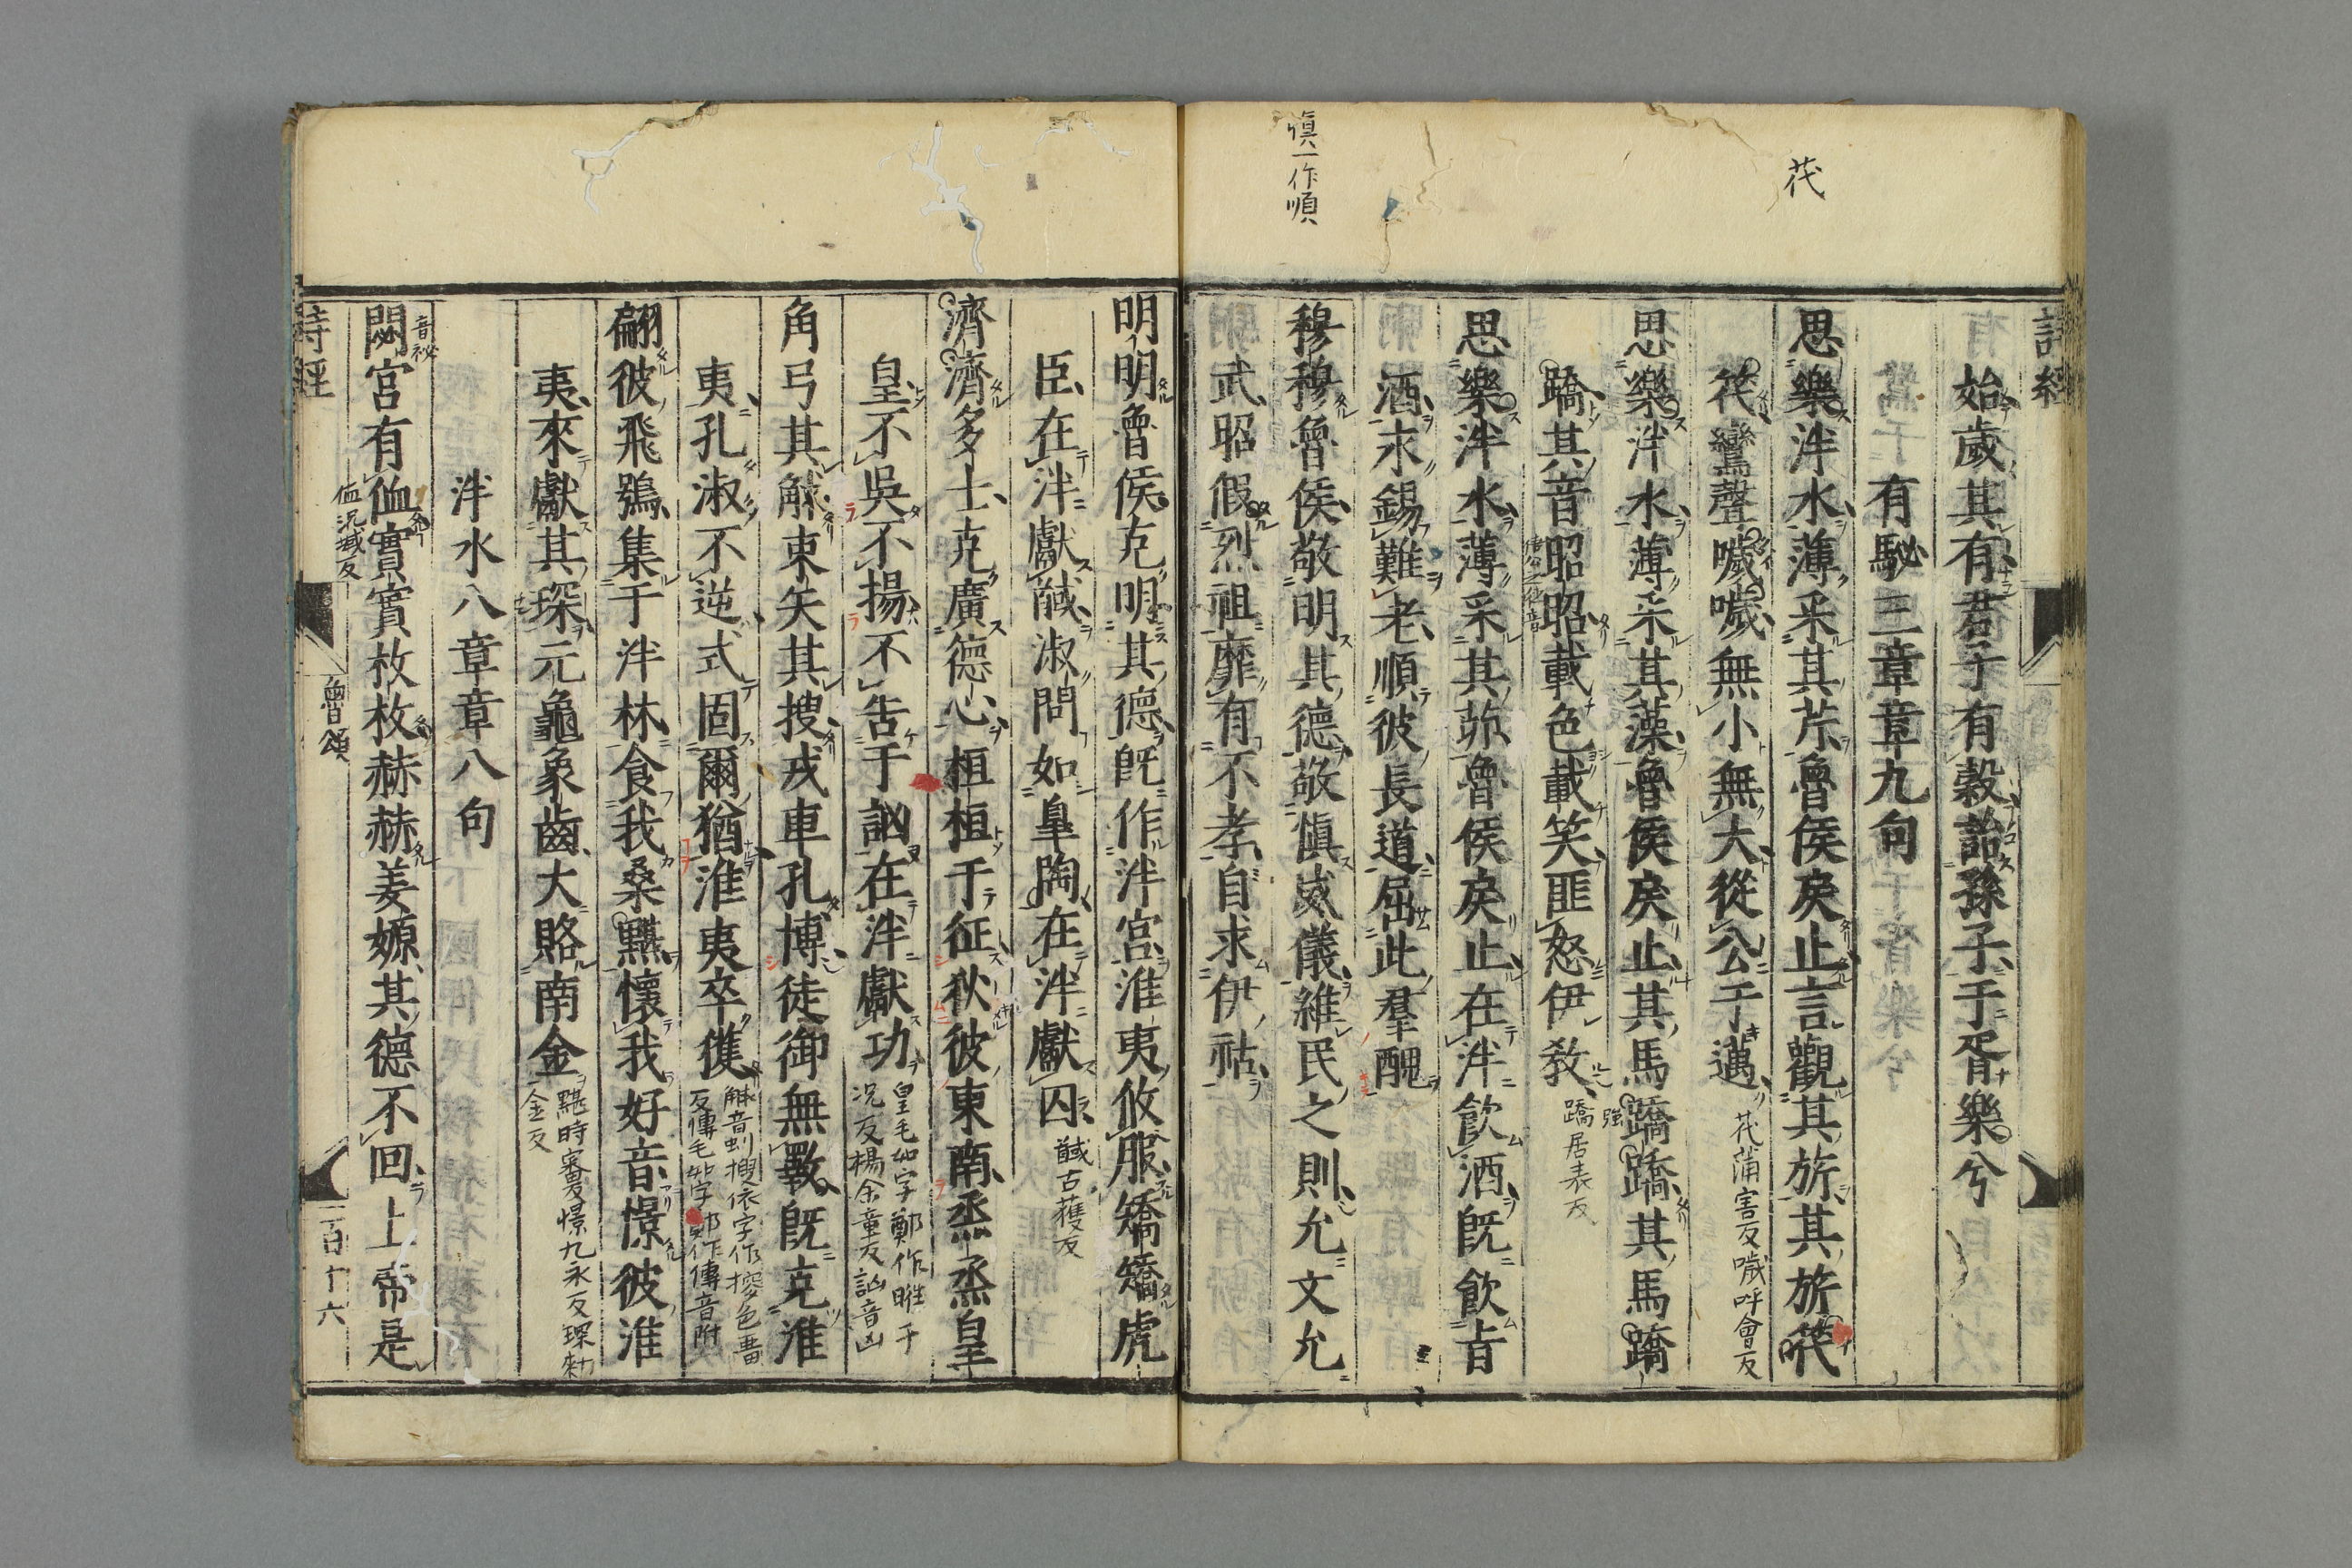 茷
慎一作順
詩經
始歲其有君子有穀詒孫子于胥樂兮
有駜三章章九句
思樂泮水薄采其芹魯侯戾止言觀其旂其旂茷
茷鸞聲噦噦無小無大從公于邁
茷蒲害反噦呼會反
思樂泮水薄采其藻魯侯戾止其馬蹻蹻其馬蹻
蹻其音昭昭載色載笑匪怒伊敎
蹻居表反
強
思樂泮水薄采其茆魯侯戾止在泮飮酒旣飮旨
酒永錫難老順彼長道屈此羣醜
穆穆魯侯敬明其德敬慎威儀維民之則允文允
武昭假烈祖靡有不孝自求伊祜
明明魯侯克明其德旣作泮宮淮夷攸服矯矯虎
臣在泮獻馘淑問如臯陶在泮獻囚
馘古獲反
濟濟多士克廣德心桓桓于征狄彼東南烝烝皇
皇不吳不揚不告于訩在泮獻功
皇毛如字鄭作暀于
况反楊余章反訩音凶
角弓其觩束矢其搜戎車孔博徒御無斁旣克淮
夷孔淑不逆式固爾猶淮夷卒獲
觩音虯搜依字作摉色畱
反傳毛如字鄭作傅音附
翩彼飛鴞集于泮林食我桑黮懷我好音憬彼淮
夷來獻其琛元龜象齒大賂南金
黮時審反憬九永反琛勑
金反
泮水八章章八句
閟宮有侐實實枚枚赫赫姜嫄其德不回上帝是
音祕
侐况域反
詩經
魯頌
二百十六